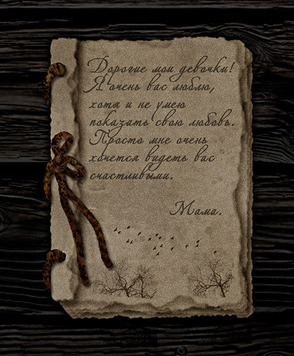 Дорогие мои девочки!
Я очень вас люблю,
хотя и не умею
показать свою любовь.
Просто мне очень
хочется видеть вас
счастливыми.
Мама.